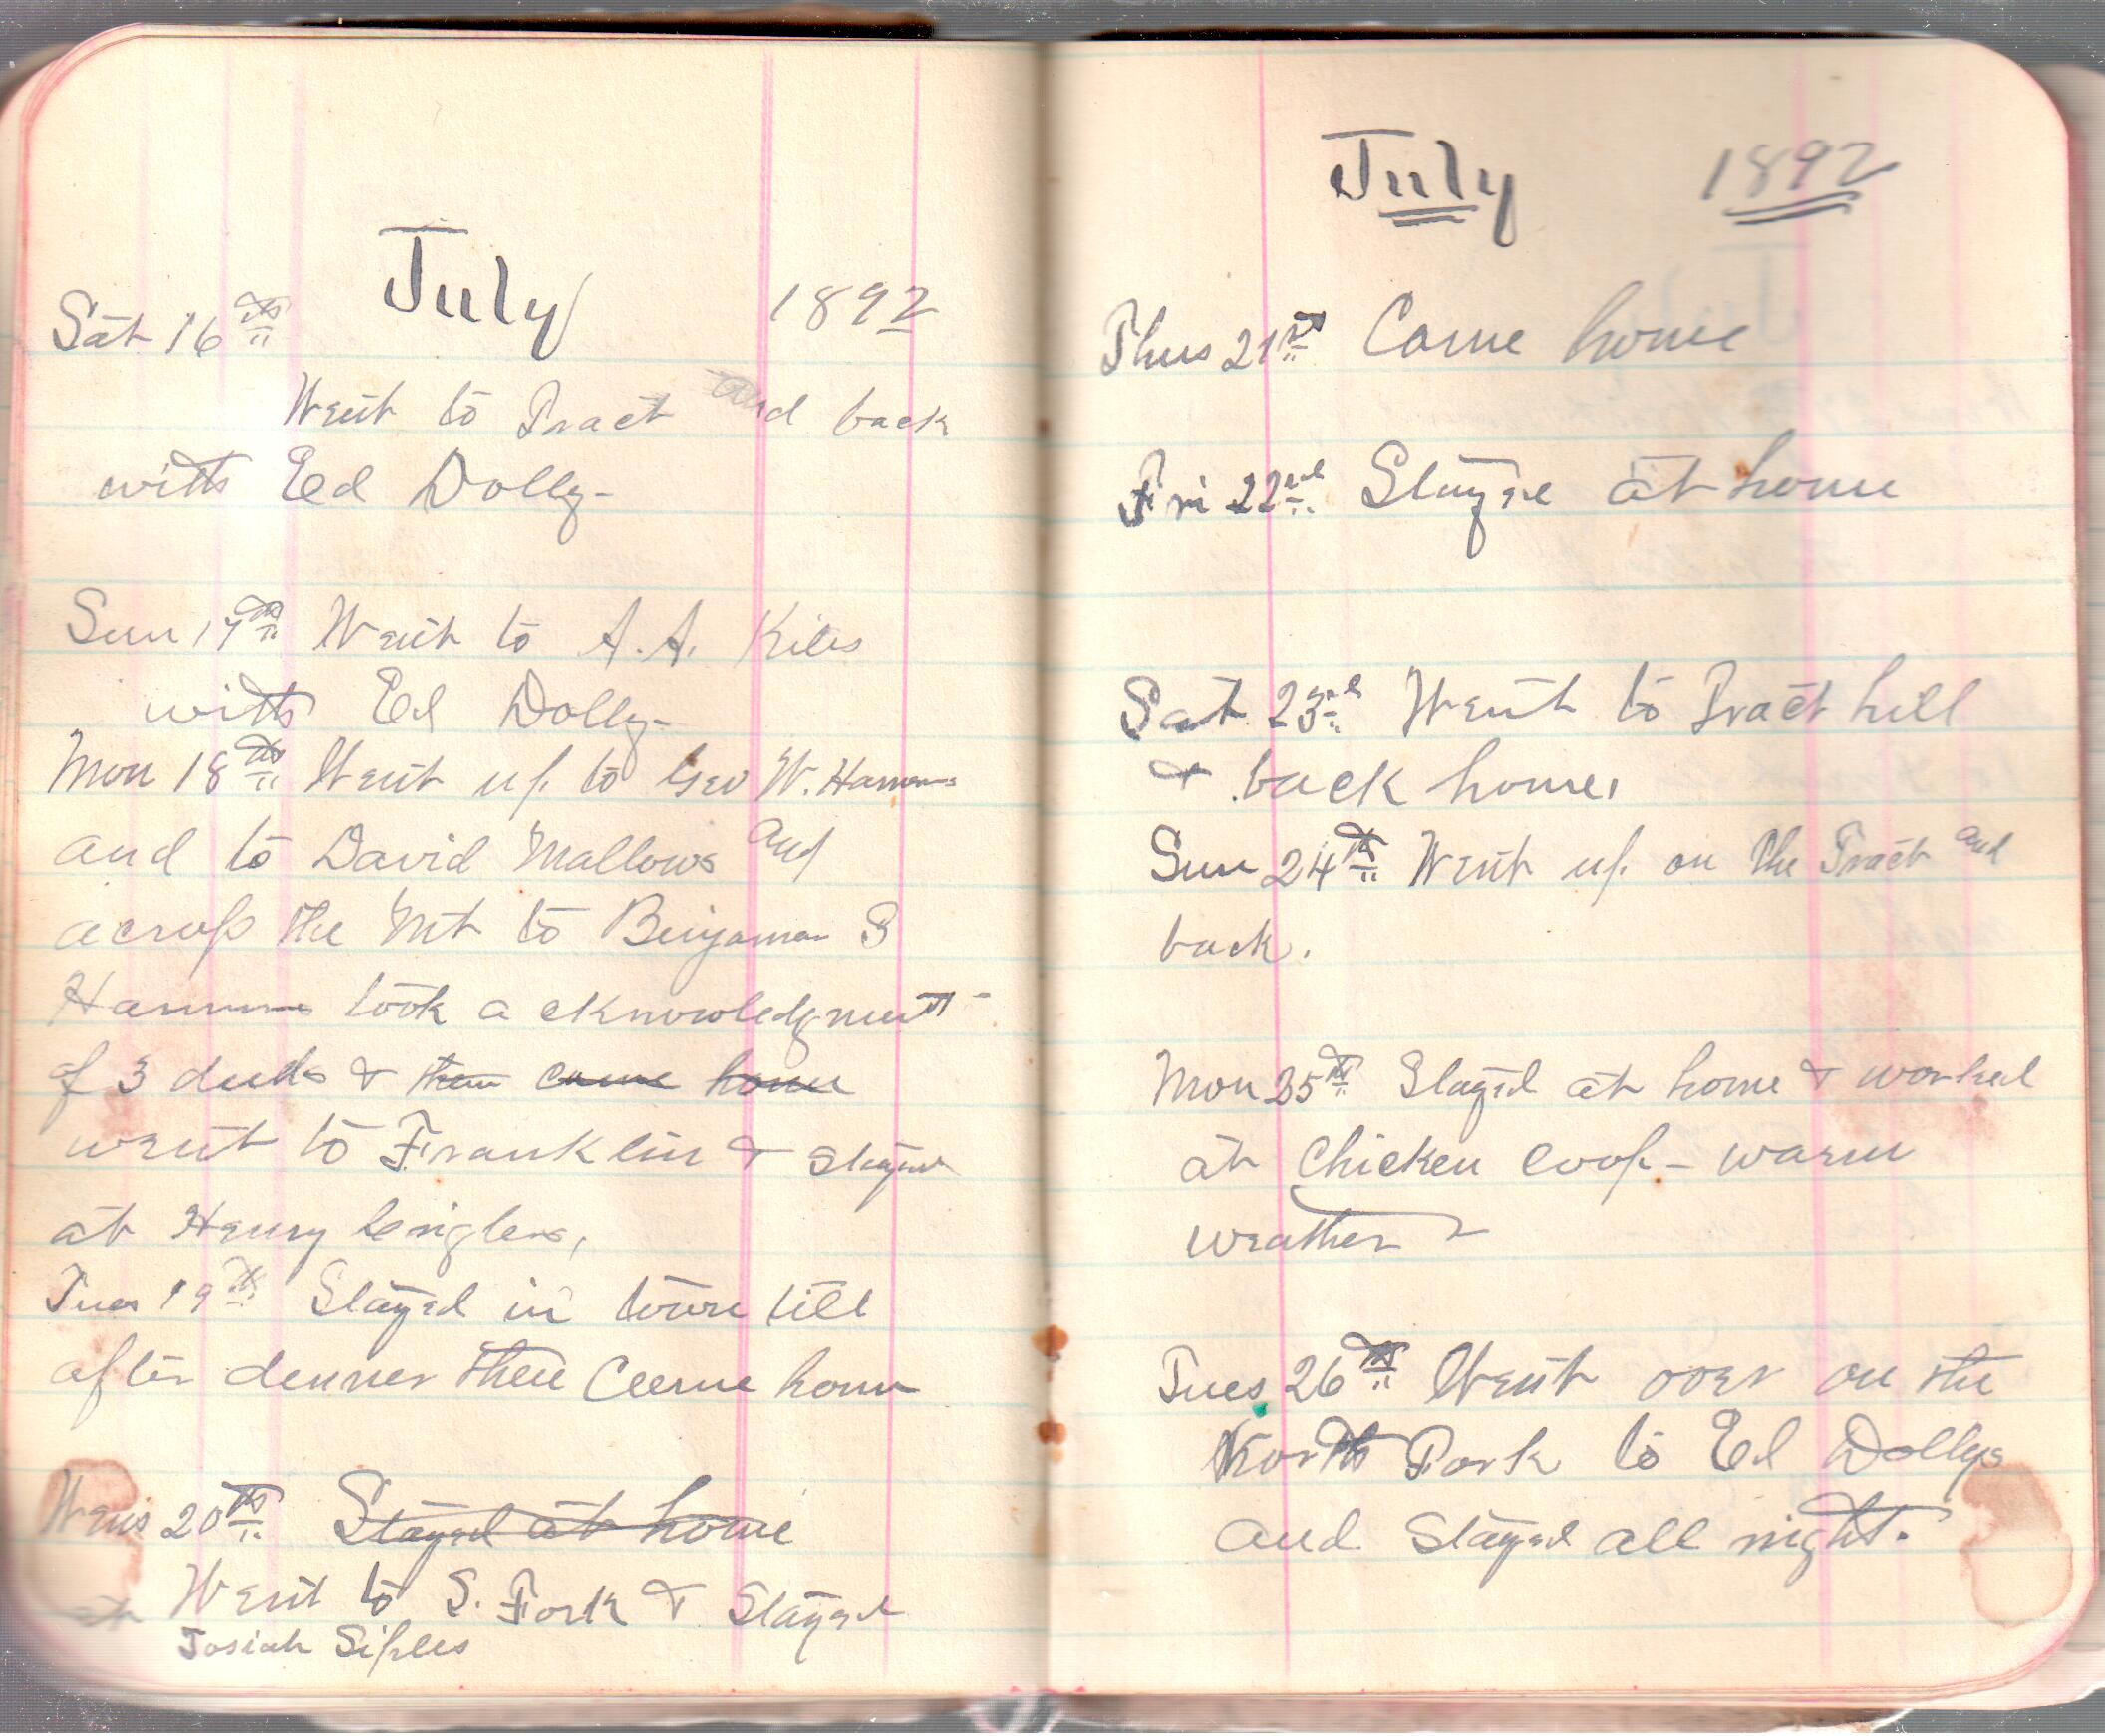 July 1892
Sat 16th
Went to Tract and back
with Ed Dolly-
Sun 17th Went to A.A. Kiles
with Ed Dolly-
Mon 18th Went up to Geo W. Harmons
and to David Mallows and
across the Mt to Benjaman S
Harmons took a cknowledgment-
of 3 deeds & then came home
went to Franklin & Stayed
at Henry
Tues 19th Stayed in town till
after denner then Came home
Wens 20th Stayed at home
Went to S. Fork & Stayed
at Josiah Siples
July 1892
Thus 21st Came home
Fri 22nd Stayed at home
Sat 23rd Went to Tract hill
& back home.
Sun 24th Went up on the Tract and
back.
Mon 25th Stayed at home & worked
at Chicken Coop - warm
weather
Tues 26th Went over on the
North Fork to Ed Dollys
and Stayed all night.